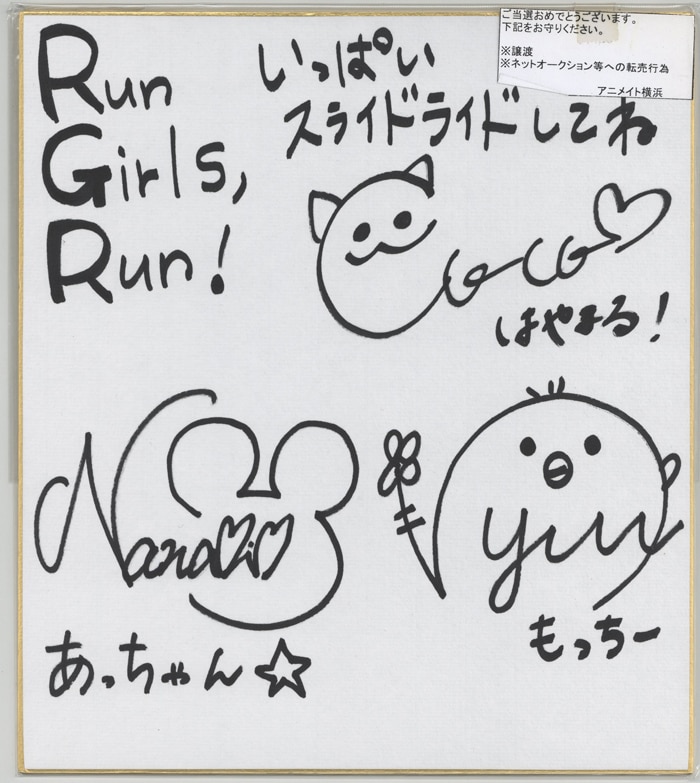 Run
Girls,
Run!
いっぱい
スライドライドしてね
ご当選おめでとうございます。
下記をお守りください。
※譲渡
※ネットオークション等への転売行為
アニメイト横浜
CoCo
はやまる!
Nanami
あっちゃん☆
yuu
もっちー